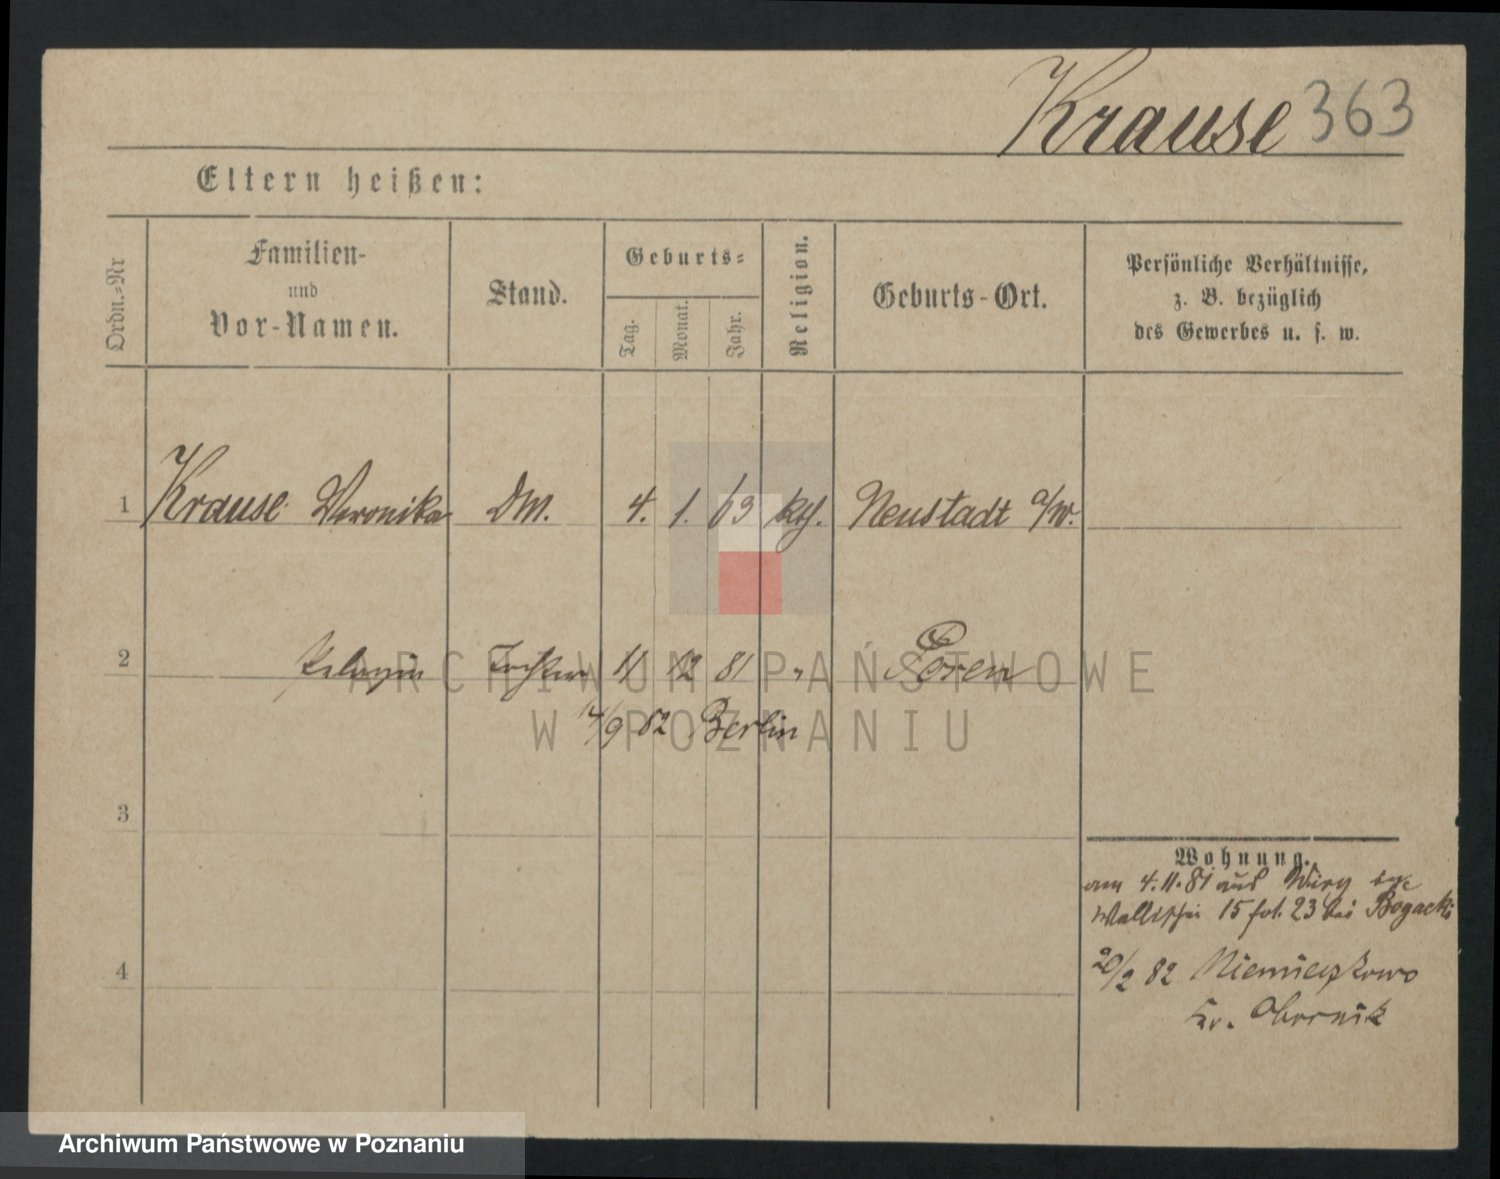 Krause 363
Eltern heißen:
Ordn.=Nr
Familien-
und
Vor-Namen.
Stand.
Geburts=
Tag.
Monat.
Jahr.
Religion.
Geburts-Ort.
Persönliche Verhältnisse,
z. B. bezüglich
des Gewerbes u. s. w.
1 Krause Veronika DM. 4. 1. 63 kth. Neustadt a/W.
2 Pelagia Tochter 11 12 81 " Posen
14/9 82 Berlin
3
4
Wohnung.
am 4.11.81 aus
Wallischei 15 fol. 23 bei Bogacki
20/2 82 Niemieczkowo
Kr. Obornik
ARCHIWUM PAŃSTWOWE
W POZNANIU
Archiwum Państwowe w Poznaniu